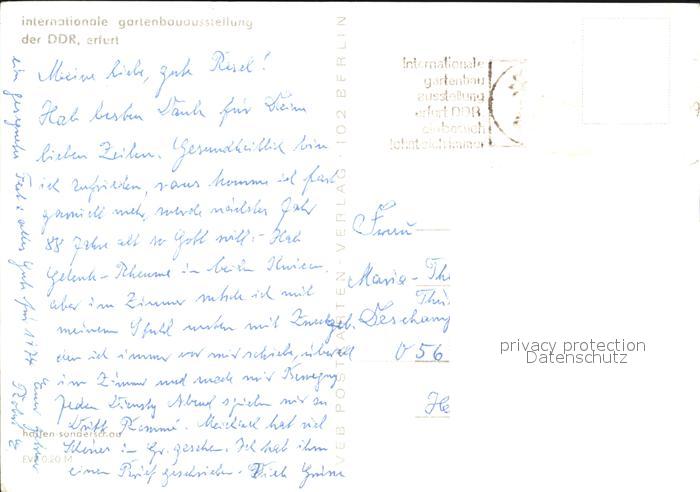 internationale gartenbauausstellung
der DDR, erfurt
Meine liebe, gute Resel!
Hab besten Dank für Deine
lieben Zeilen. Gesundheitlich bin
ich zufrieden, raus komme ich fast
garnicht mehr, werde nächstes Jahr
88 Jahre alt so Gott will. Hab
Gelenk-Rheuma in beiden Knieen.
aber im Zimmer rutsche ich mit
meinem Stuhl unten mit
den ich immer vor mir schiebe, überall
im Zimmer und mach mir Bewegung
Jeden Dienstag Abend spielen wir zu
Dritt Rommé. hat viel
Schönes in gesehen. Ich hab ihm
einen Brief geschrieben. Dich Grüsse
ein gesegnetes Fest u. alles Gute für 1974
hallen-sonderschau
EVP 0.20 M
VEB POSTKARTEN-VERLAG · 102 BERLIN
Internationale
gartenbau
ausstellung
erfurt DDR
ein besuch
lohnt sich immer
Frau
Maria-Th
Thü
geb. Deschamp
056
He
privacy protection
Datenschutz